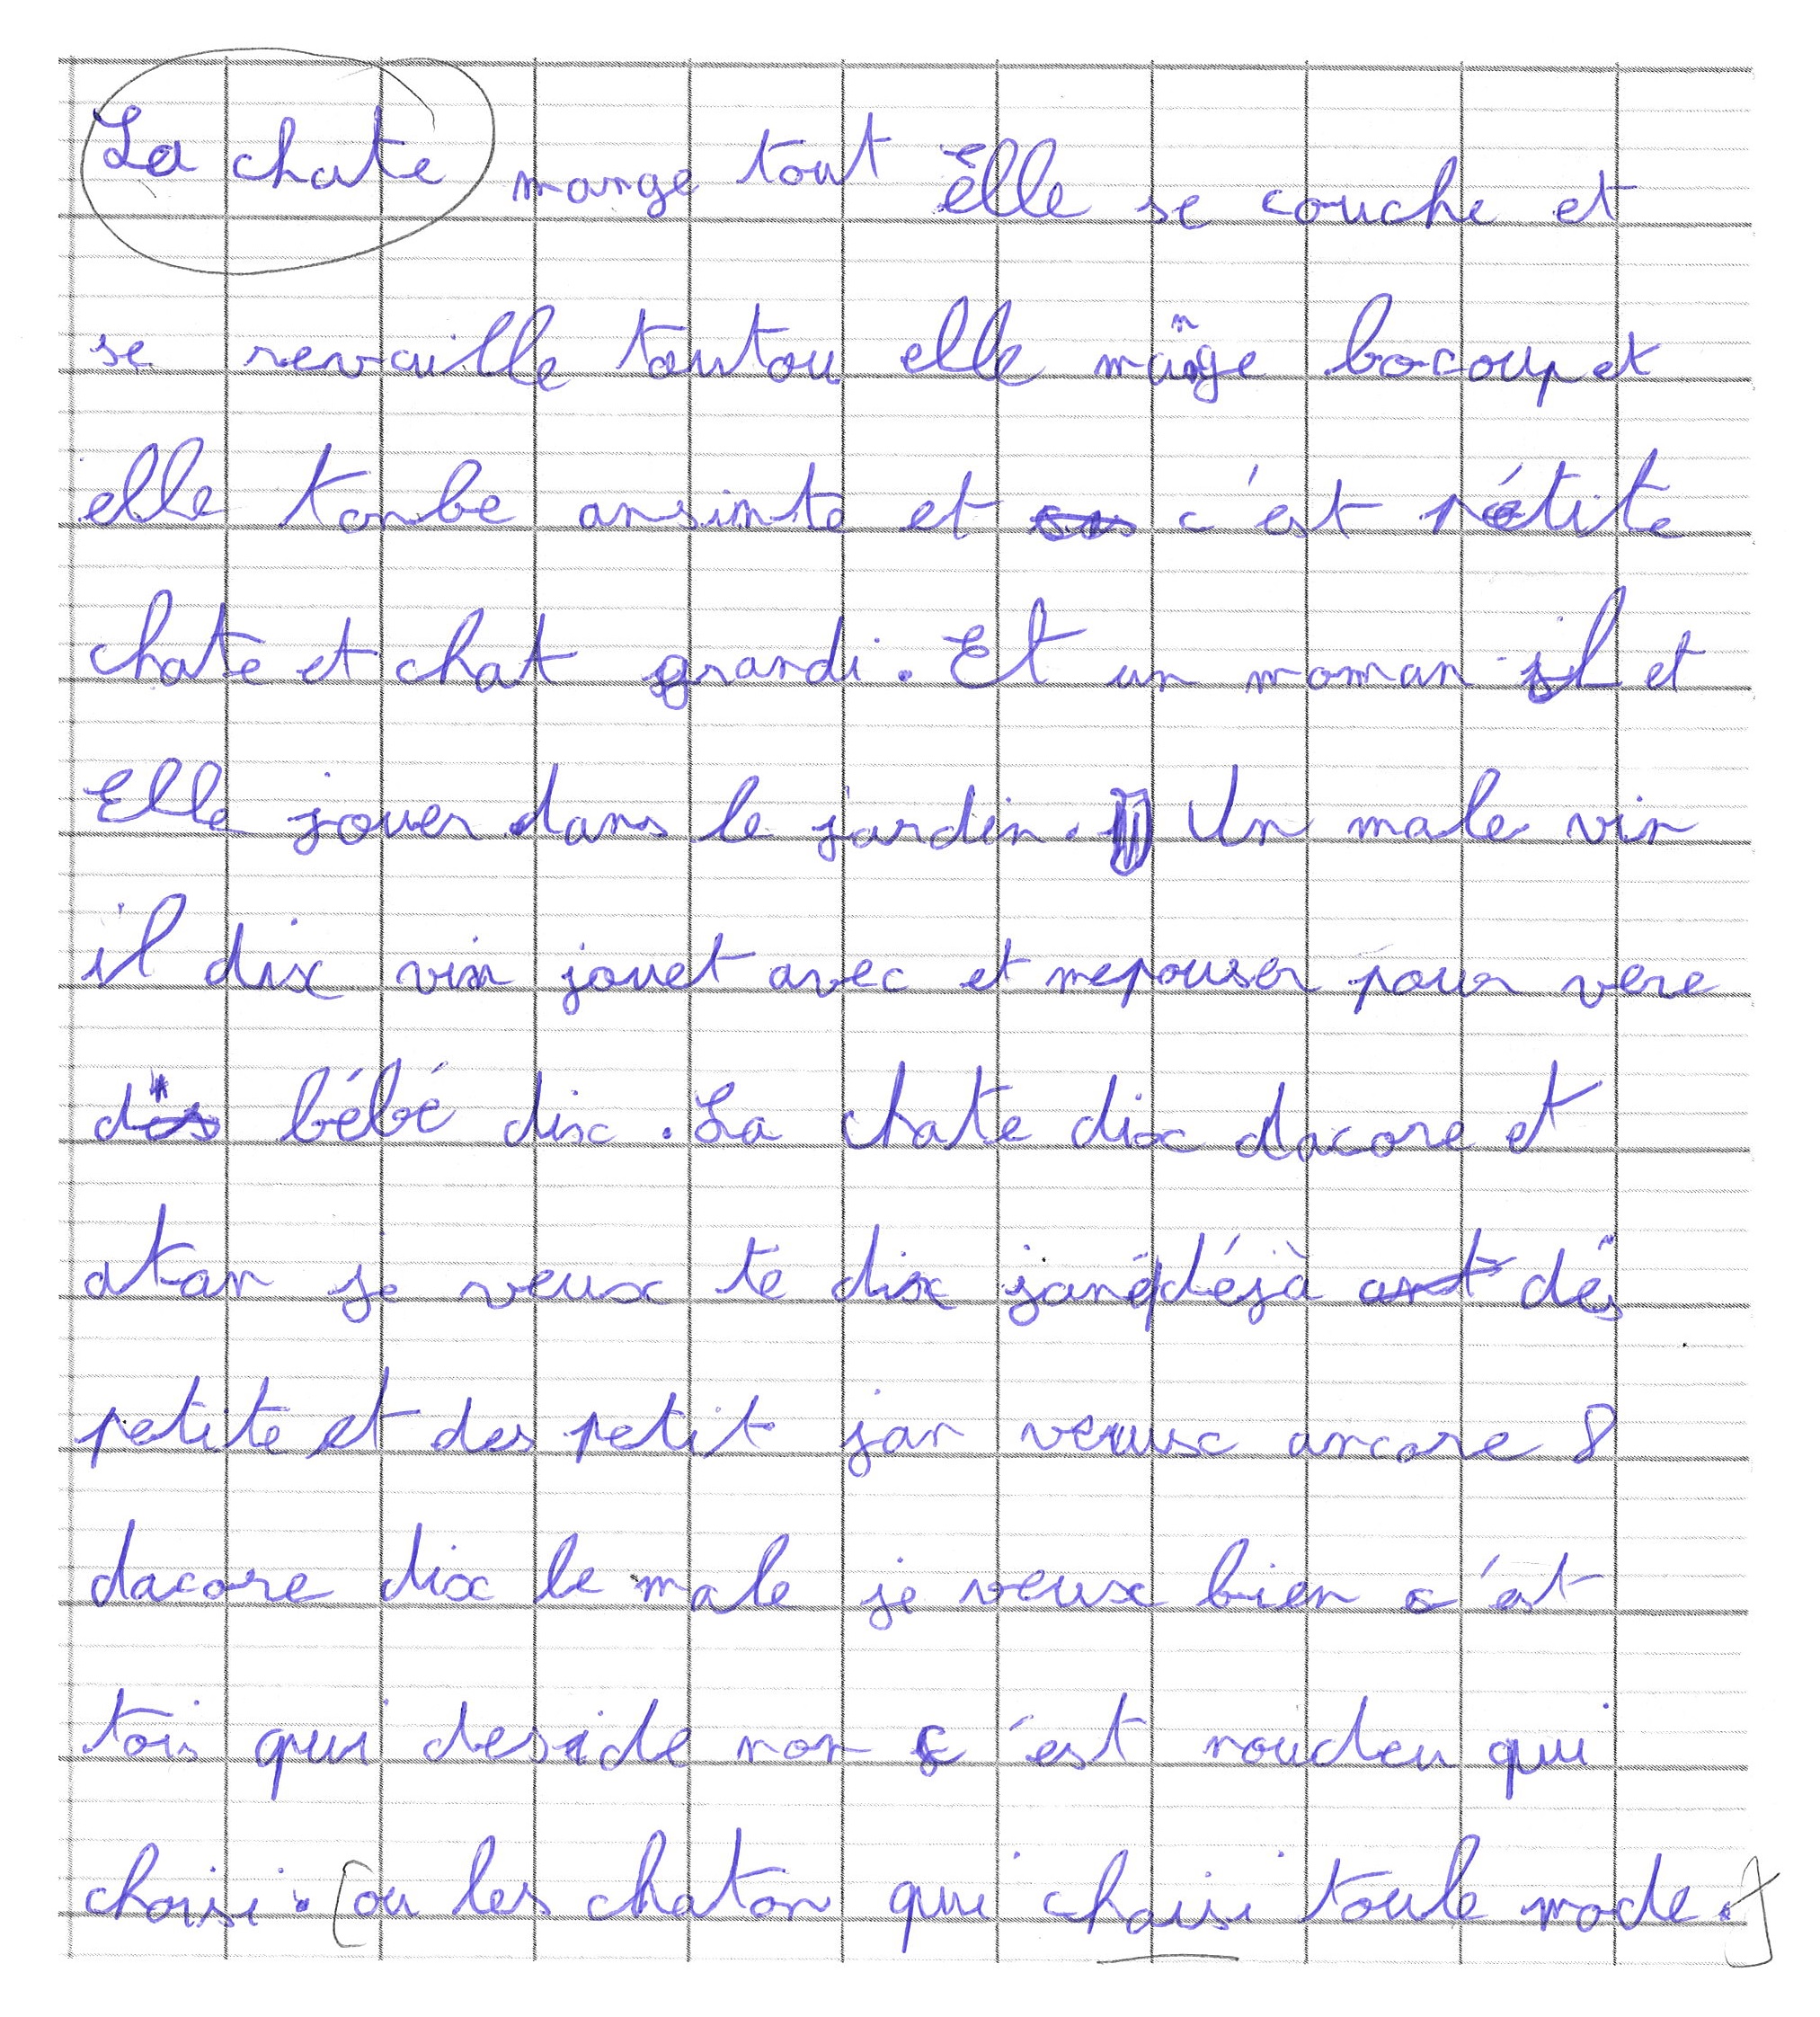 La chate mange tout Elle se couche et
se revaille toutou elle mange bocoup et
elle tonbe ansinte et c'est pétite
chate et chat grandi. Et un moman il et
Elle jouer dans le jardin. Un male vin
il dix vin jouet avec et mepouser pour vere
des bébé dix. La chate dix dacore et
atan je veux te dix jané déjà dés
petite et des petit jan veuux ancore 8
dacore dix le male je veux bien c'est
tois qui deside non c'est noudeu qui
choisi. [ou les chaton qui choisi toule mode.]